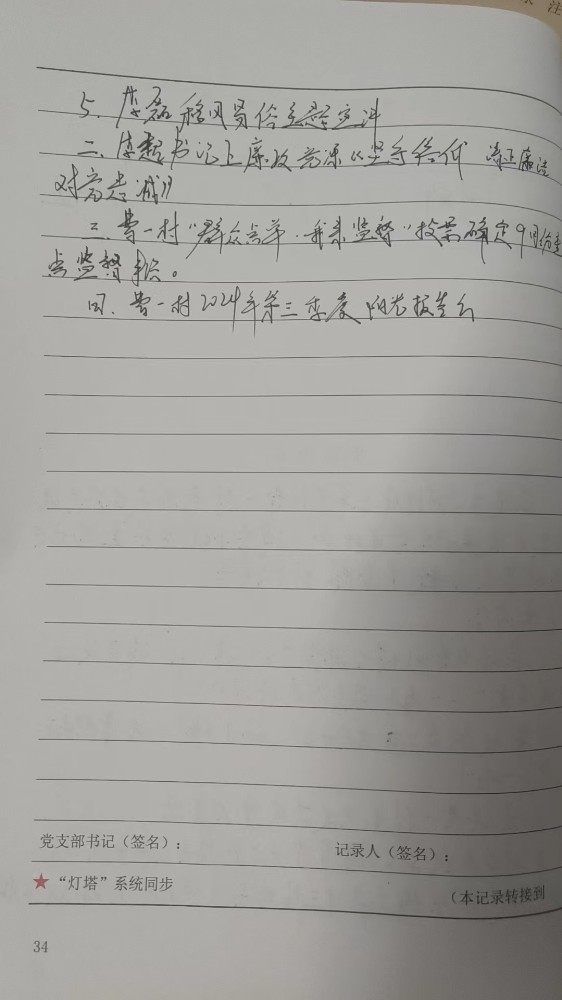 注
5. 李磊 移风易俗主题宣讲
二、李超书记上廉政党课《坚守信仰 清正廉洁
对高老减》
三、曹一村"群众点单·我来监督"投票确定9月份重
点监督事项。
四、曹一村2024年第三季度阳光报告会
党支部书记（签名）：
记录人（签名）：
★"灯塔"系统同步
（本记录转接到
34